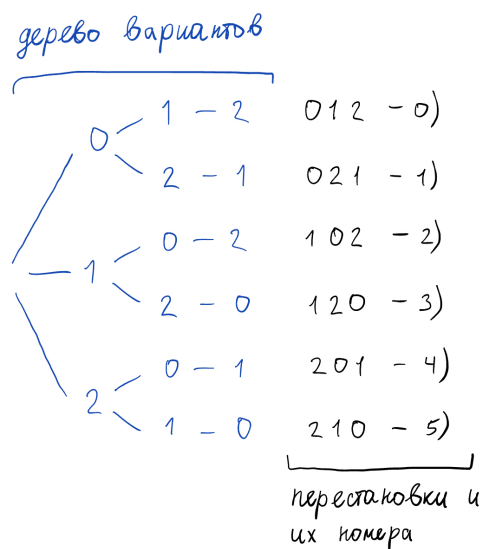 дерево вариантов
0 1 - 2 012 - 0)
2 - 1 021 - 1)
1 0 - 2 102 - 2)
2 - 0 120 - 3)
2 0 - 1 201 - 4)
1 - 0 210 - 5)
перестановки и
их номера